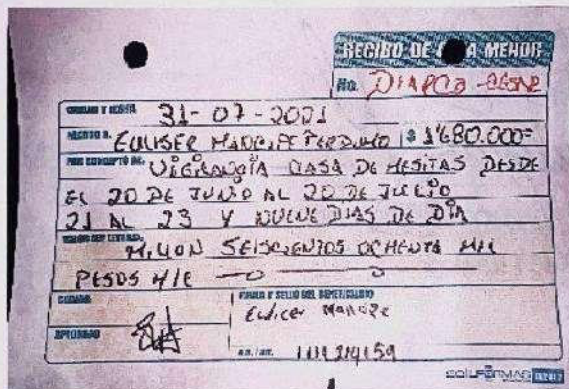 RECIBO DE CAJA MENOR
No. DIAPCO
CIUDAD Y FECHA 31-07-2001
PAGADO A. EULISER PERDOMO $ 1'680.000=
POR CONCEPTO DE. VIGILANCIA CASA DE MESITAS DESDE
EL 20 DE JUNIO AL 20 DE JULIO
21 AL 23 Y NUEVE DIAS DE DIA
MILLON SEISCIENTOS OCHENTA MIL
PESOS M/E
CODIGO
FIRMA Y SELLO DEL BENEFICIARIO
Euliser
APROBADO